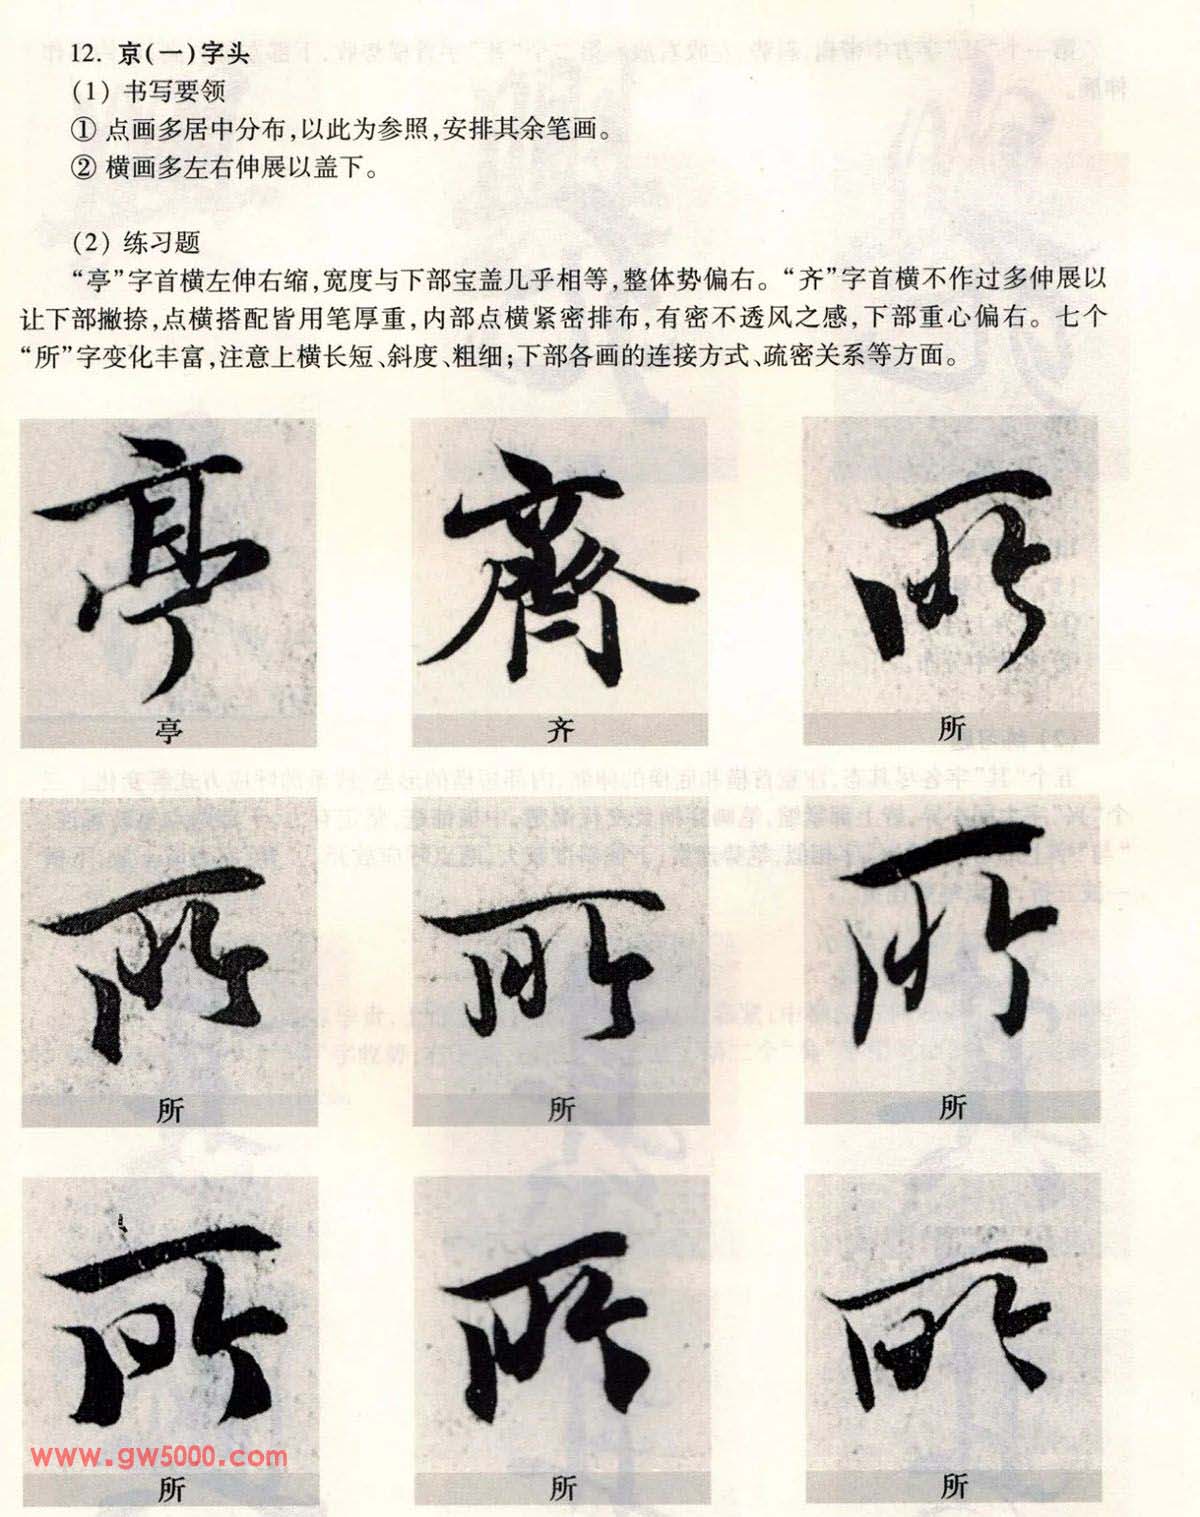 12. 京(一)字头
(1) 书写要领
① 点画多居中分布,以此为参照,安排其余笔画。
② 横画多左右伸展以盖下。
(2) 练习题
“亭”字首横左伸右缩,宽度与下部宝盖几乎相等,整体势偏右。“齐”字首横不作过多伸展以
让下部撇捺,点横搭配皆用笔厚重,内部点横紧密排布,有密不透风之感,下部重心偏右。七个
“所”字变化丰富,注意上横长短、斜度、粗细;下部各画的连接方式、疏密关系等方面。
亭 齊 所
亭 齐 所
所 所 所
所 所 所
所 所 所
www.gw5000.com
所 所 所